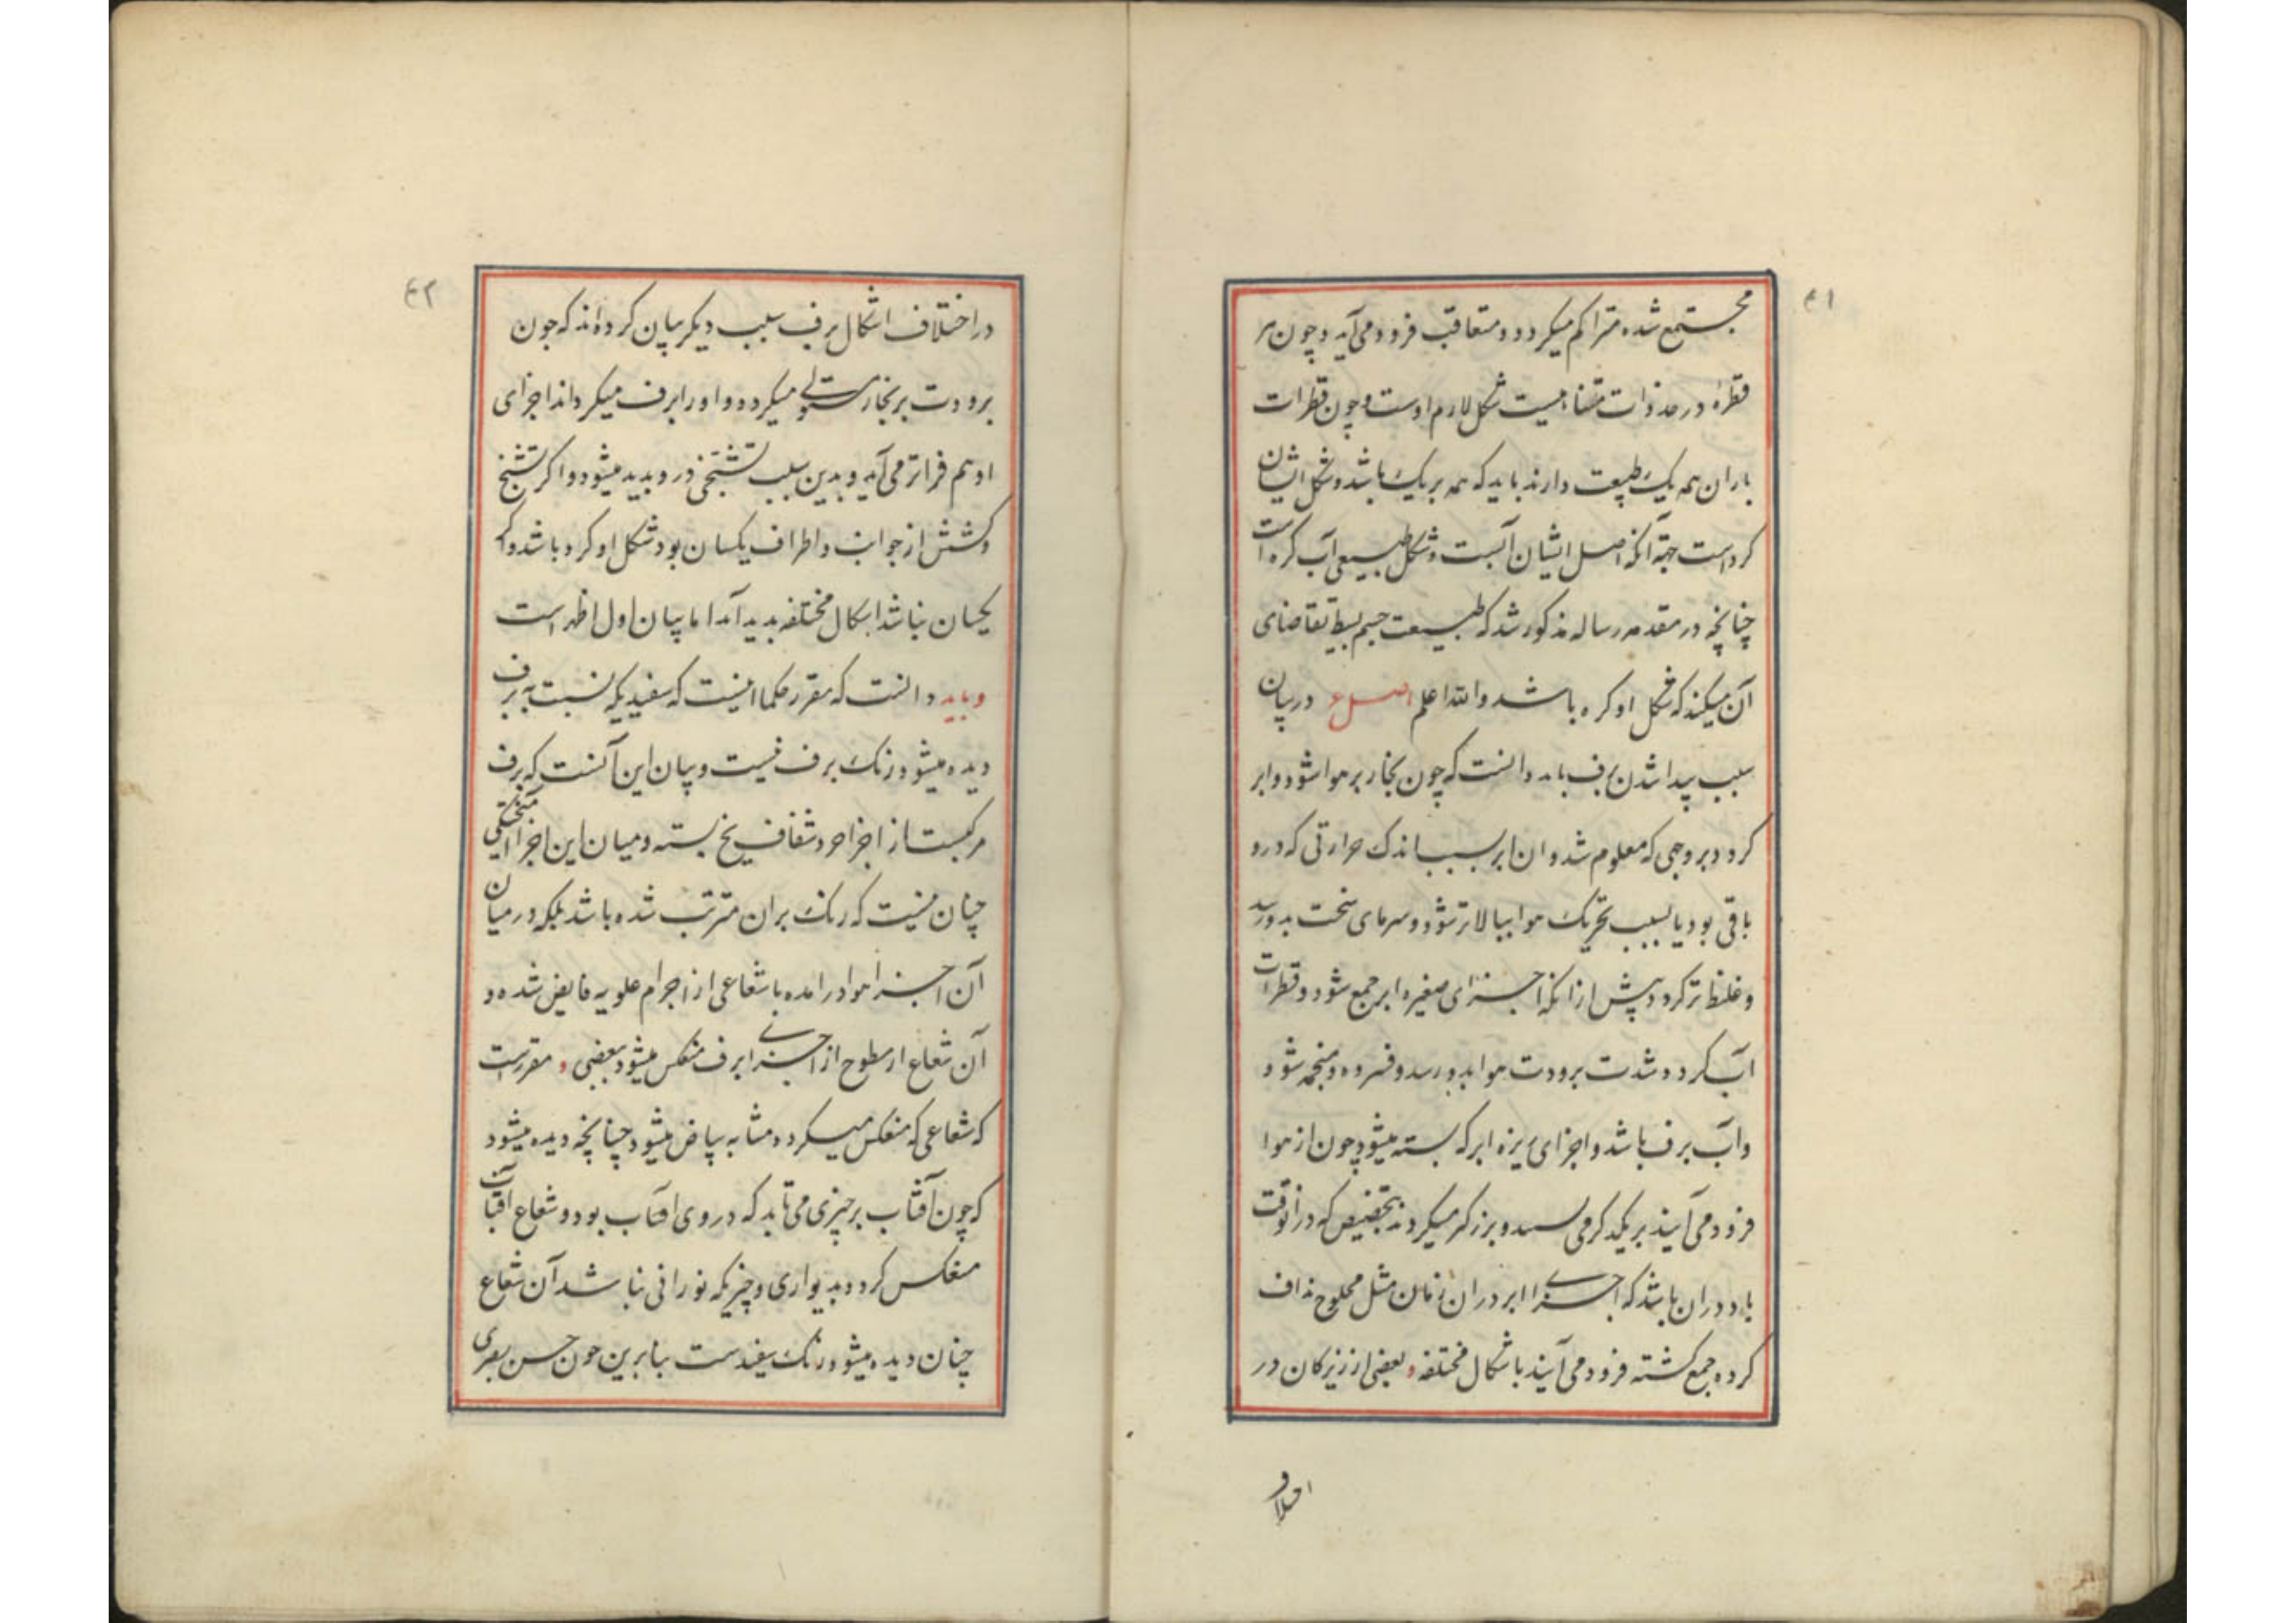 ۴۱
مجتمع شده متراکم میکردد و متعاقب فرود می‌آید و چون هر
قطرهٔ در حد ذات متناهیست شکل لازم اوست و چون قطرات
باران همه یک طبیعت دارند باید که همه بر یک باشد و شکل ایشان
کرد است جهة آنکه اصل ایشان آبست و شکل طبیعی آب کره است
چنانچه در مقدمه رساله مذکور شد که طبیعت جسم بسیط تقاضای
آن میکند که شکل او کره باشد والله اعلم اصل در بیان
سبب پیدا شدن برف باید دانست که چون بخار بر هوا شود و ابر
کردد بر وجهی که معلوم شد و ان ابر بسبب اندک حرارتی که درو
باقی بود یا بسبب تحریک هوا ببالاتر شود و سرمای سخت بدو رسد
و غلیظ تر کردد پیش از انکه اجزای صغیره ابر جمع شود و قطرات
اب کردد شدت برودت هوا بدو رسد و فسرده و منجمد شود
واب برف باشد و اجزای ریزه ابر که بسته میشود چون از هوا
فرود می‌آیند بر یکدکر می رسند و بزرکتر میکردند بتخصیص که در انوقت
باد در ان باشد که اجزا ابر در ان زمان مثل محلوج نداف
کرده جمع کشته فرود می‌آیند باشکال مختلفه و بعضی از زیرکان در
اختلاف
۴۲
در اختلاف اشکال برف سبب دیکر بیان کرده‌اند که چون
برودت بر بخار مستولی میکردد و او را برف میکرداند اجزای
او هم فراتر می‌آید و بدین سبب تشنجی درو پدید میشود و اکر تشنج
و کشش از جوانب و اطراف یکسان بود شکل او کرد باشد و اکر
یکسان نباشد اشکال مختلفه پدید آمد اما بیان اول اظهر است
و باید دانست که مقرر حکما اینست که سفیدیکه نسبت به برف
دیده میشود رنک برف نیست و بیان این آنست که برف
مرکبست از اجزا خرد شفاف یخ بسته و میان این اجزا
چنان نیست که رنک بران مترتب شده باشد بلکه در میان
آن اجزا هوا در امده با شعاعی از اجرام علویه فایض شده و
آن شعاع از سطوح از اجزا برف منعکس میشود ببعضی و مقررست
که شعاعی که منعکس میکردد مشابه بیاض میشود چنانچه دیده میشود
که چون آفتاب بر چیزی می تابد که در روی افتاب بود و شعاع افتاب
منعکس کردد بدیواری و چیزیکه نورانی نباشد آن شعاع
چنان دیده میشود رنک سفیدست بنابرین چون حس بصری